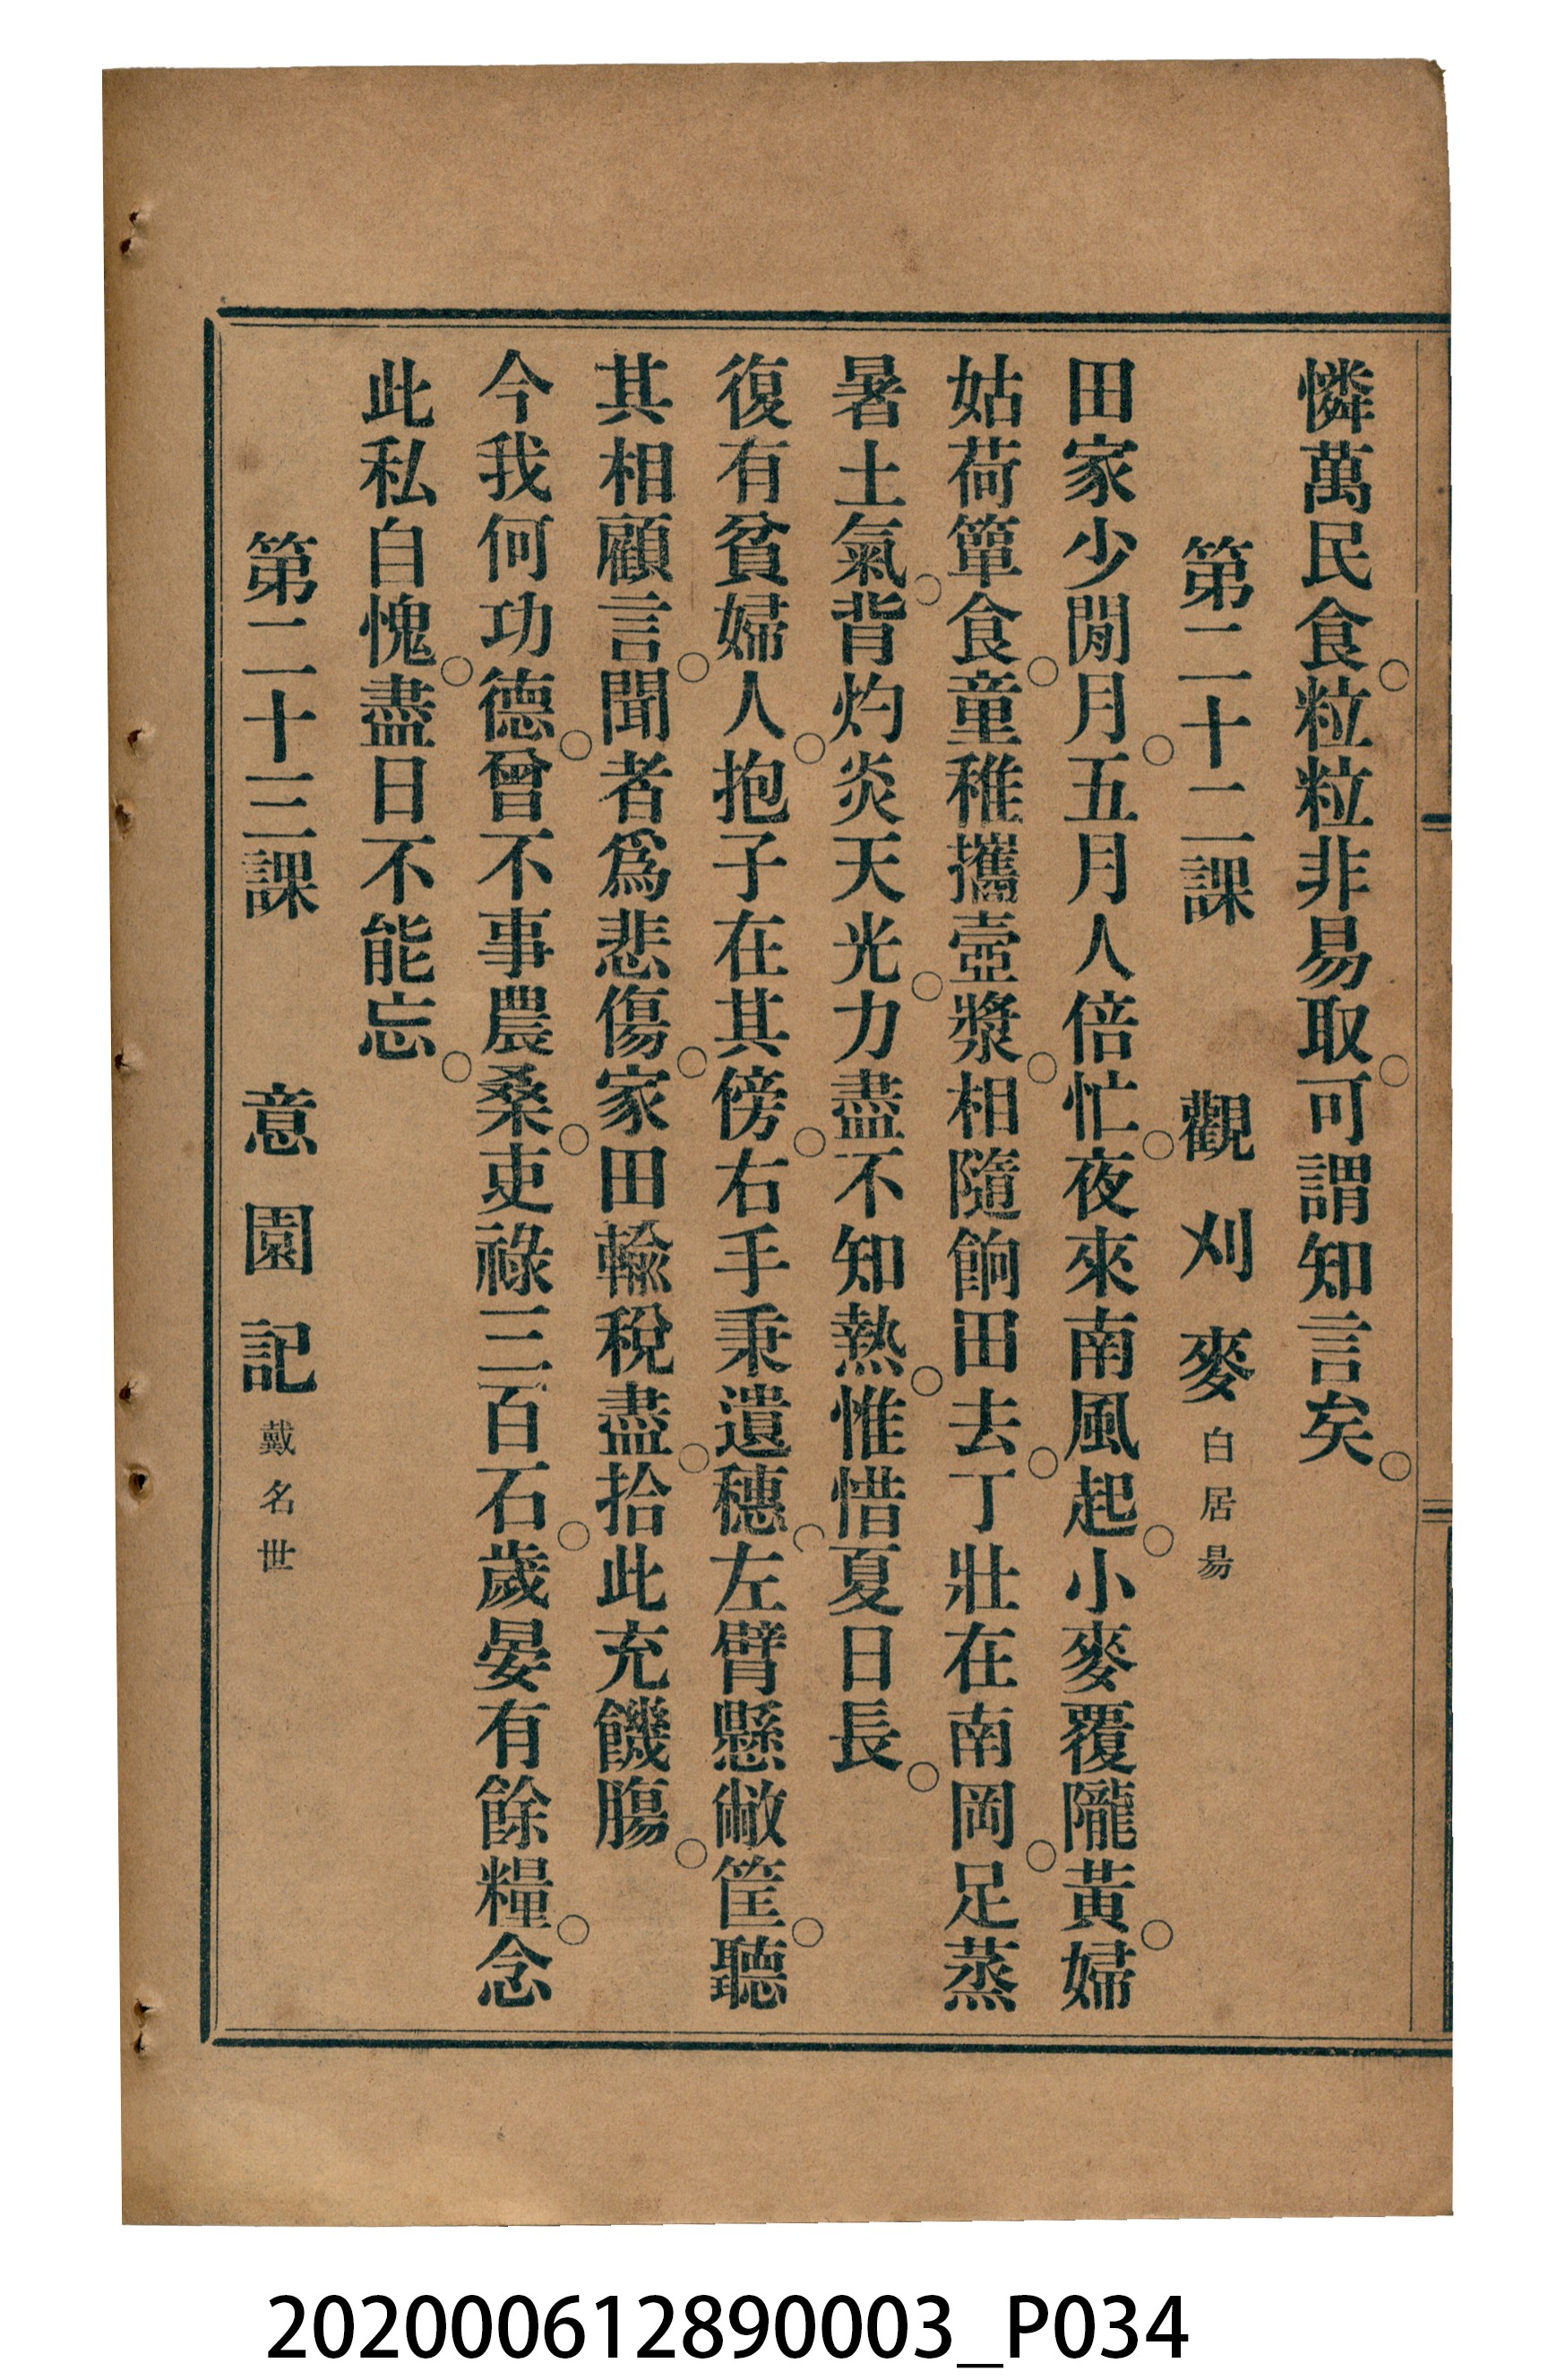 憐萬民食○粒粒非易取○可謂知言矣○
第二十二課　觀刈麥 白居易
田家少閒月○五月人倍忙○夜來南風起○小麥覆隴黃○婦
姑荷簞食○童稚攜壺漿○相隨餉田去○丁壯在南岡○足蒸
暑土氣○背灼炎天光○力盡不知熱○惟惜夏日長○
復有貧婦人○抱子在其傍○右手秉遺穗○左臂懸敝筐○聽
其相顧言○聞者爲悲傷○家田輸稅盡○拾此充饑腸○
今我何功德○曾不事農桑○吏祿三百石○歲晏有餘糧○念
此私自愧○盡日不能忘○
第二十三課　意園記 戴名世
202000612890003_P034